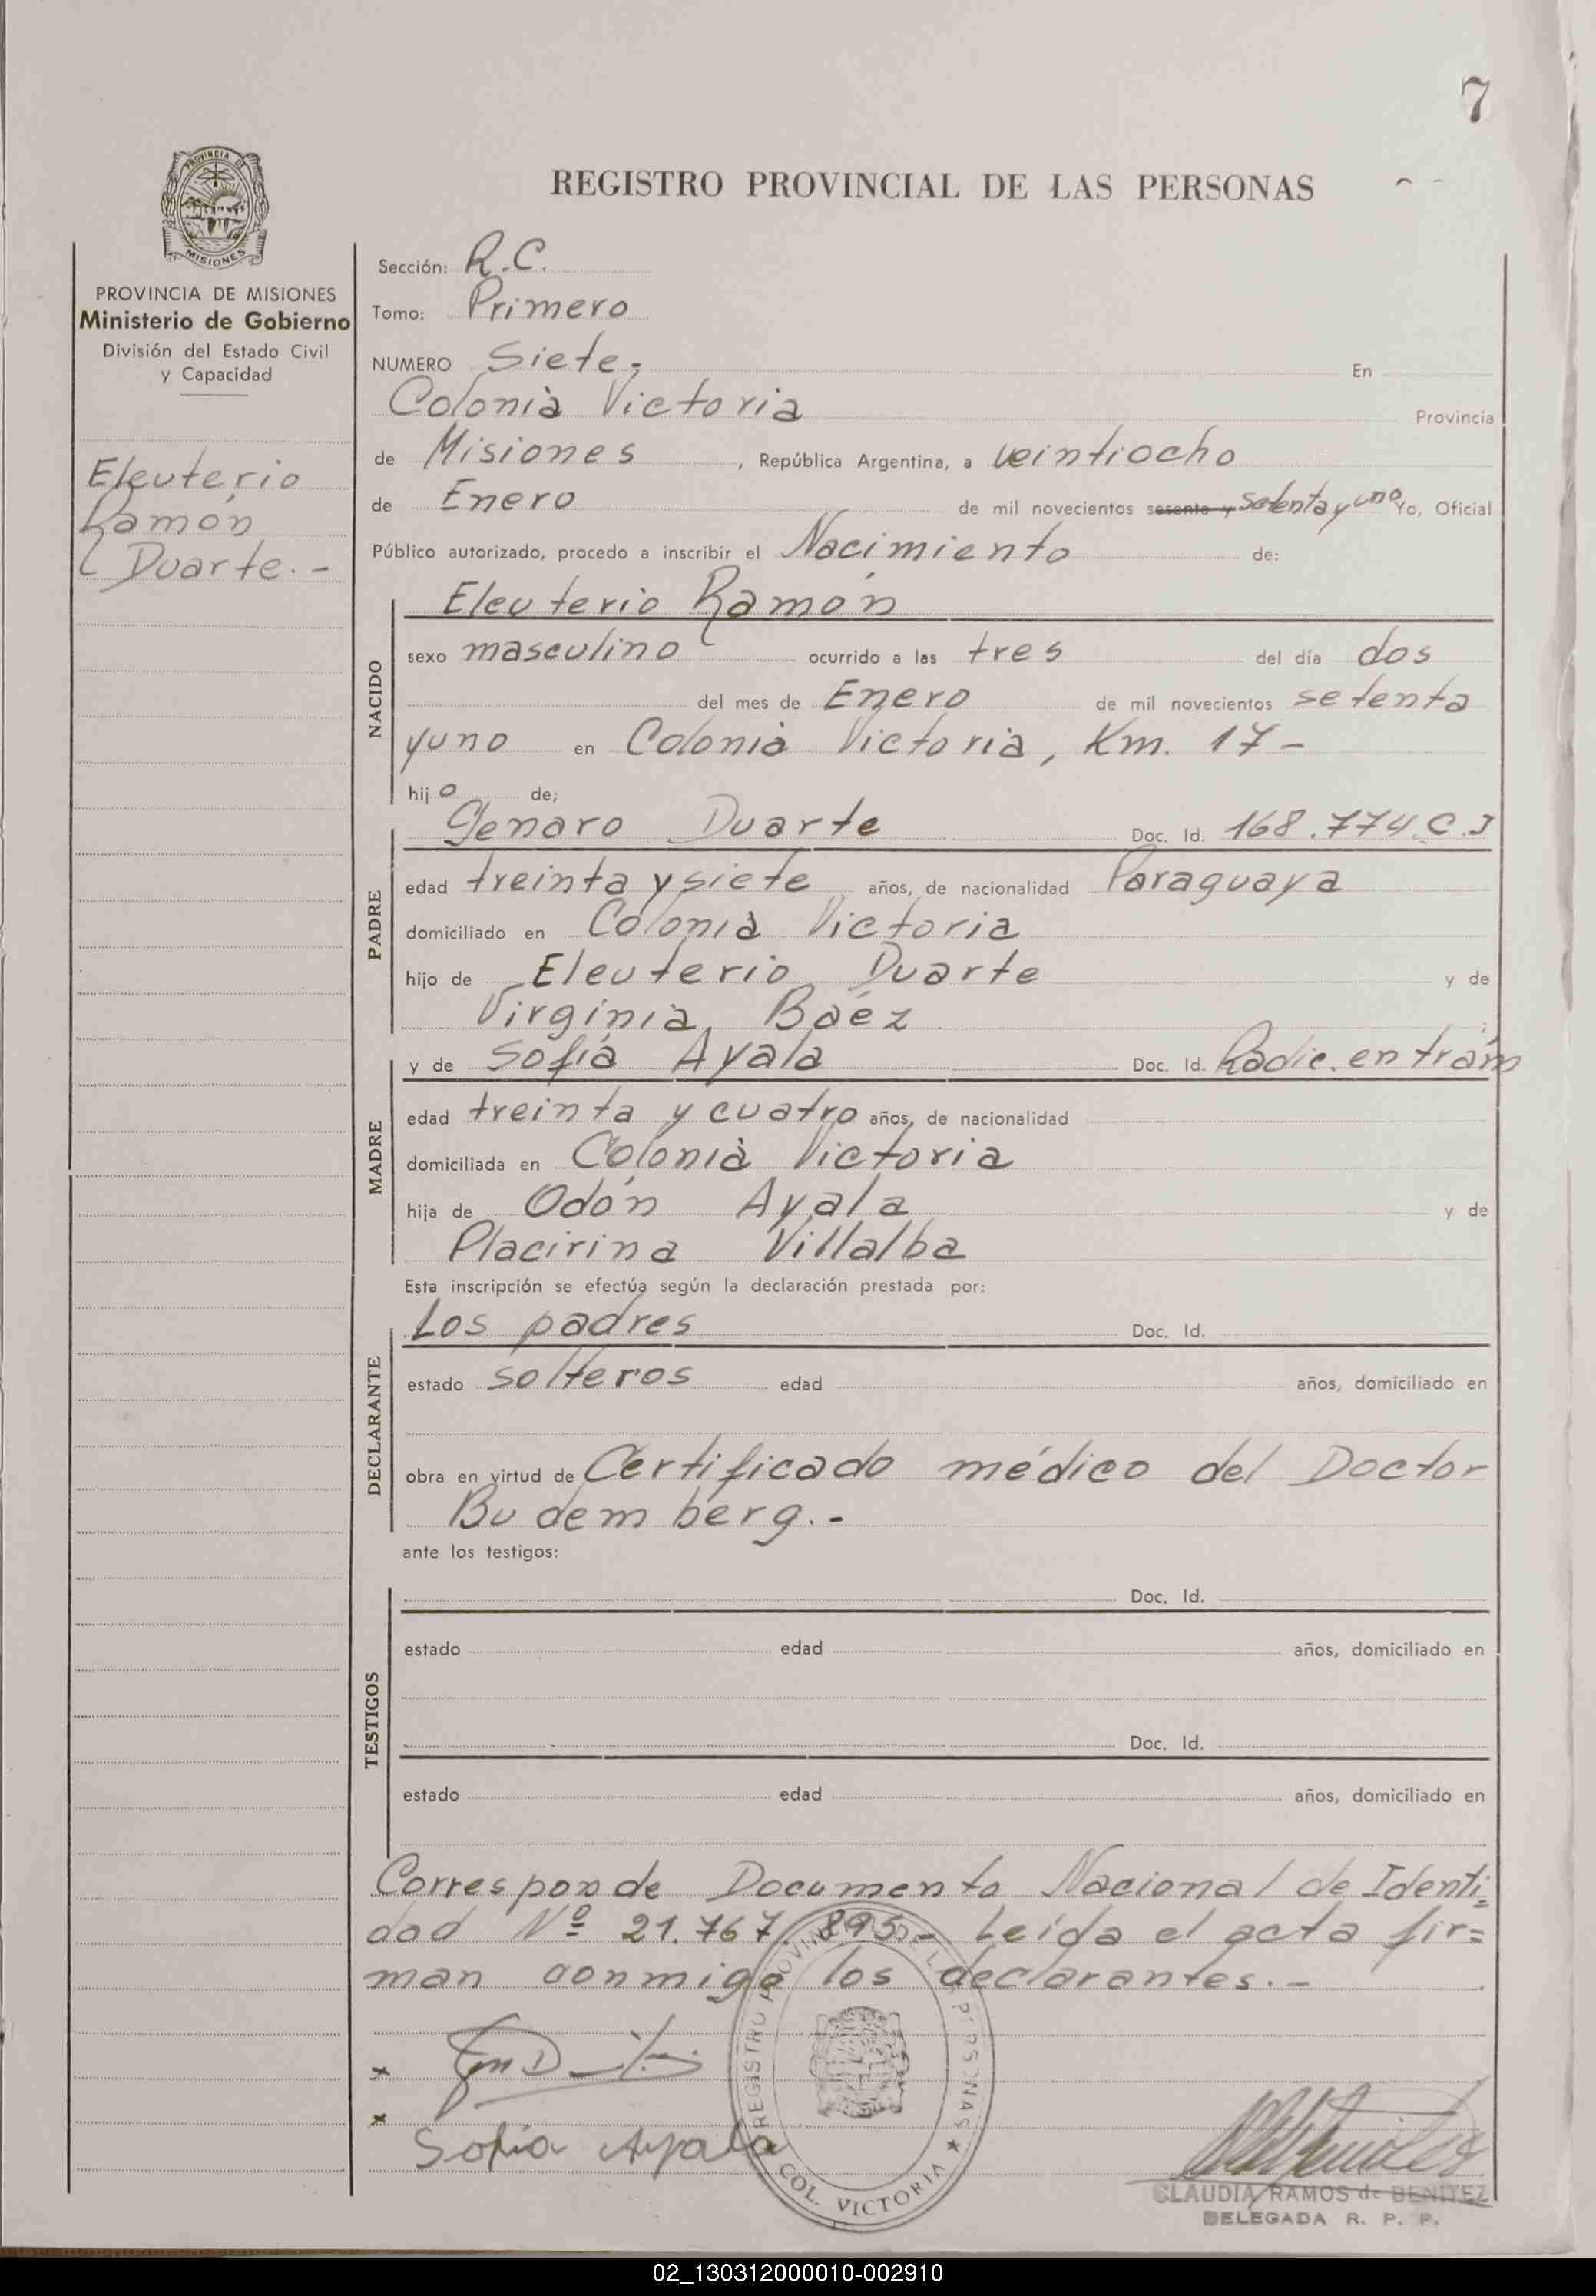 7
REGISTRO PROVINCIAL DE LAS PERSONAS
PROVINCIA DE
MISIONES
PROVINCIA DE MISIONES
Ministerio de Gobierno
División del Estado Civil
y Capacidad
Eleuterio
Ramón
Duarte.-
Sección: R.C.
Tomo: Primero
NUMERO Siete- En
Colonia Victoria Provincia
de Misiones, República Argentina, a veintiocho
de Enero de mil novecientos sesenta y setenta y uno Yo, Oficial
Público autorizado, procedo a inscribir el Nacimiento de:
NACIDO
Eleuterio Ramón
sexo masculino ocurrido a las tres del día dos
del mes de Enero de mil novecientos setenta
y uno en Colonia Victoria, Km. 17-
hijo de;
PADRE
Genaro Duarte Doc. Id. 168.774.C.I
edad treinta y siete años, de nacionalidad Paraguaya
domiciliado en Colonia Victoria
hijo de Eleuterio Duarte y de
Virginia Báez ;
MADRE
y de Sofía Ayala Doc. Id. Radic. en trám
edad treinta y cuatro años, de nacionalidad
domiciliada en Colonia Victoria
hija de Odón Ayala y de
Placirina Villalba
Esta inscripción se efectúa según la declaración prestada por:
DECLARANTE
Los padres Doc. Id.
estado solteros edad años, domiciliado en
obra en virtud de Certificado médico del Doctor
Budemberg.-
ante los testigos:
TESTIGOS
Doc. Id.
estado edad años, domiciliado en
Doc. Id.
estado edad años, domiciliado en
Corresponde Documento Nacional de Identi=
dad Nº 21.767.895.- Leída el acta fir=
man conmigo los declarantes.-
x
x Sofia Ayala
REGISTRO PROVINCIAL DE LAS PERSONAS ★ COL. VICTORIA
CLAUDIA RAMOS de BENITEZ
DELEGADA R. P. P.
02_130312000010-002910